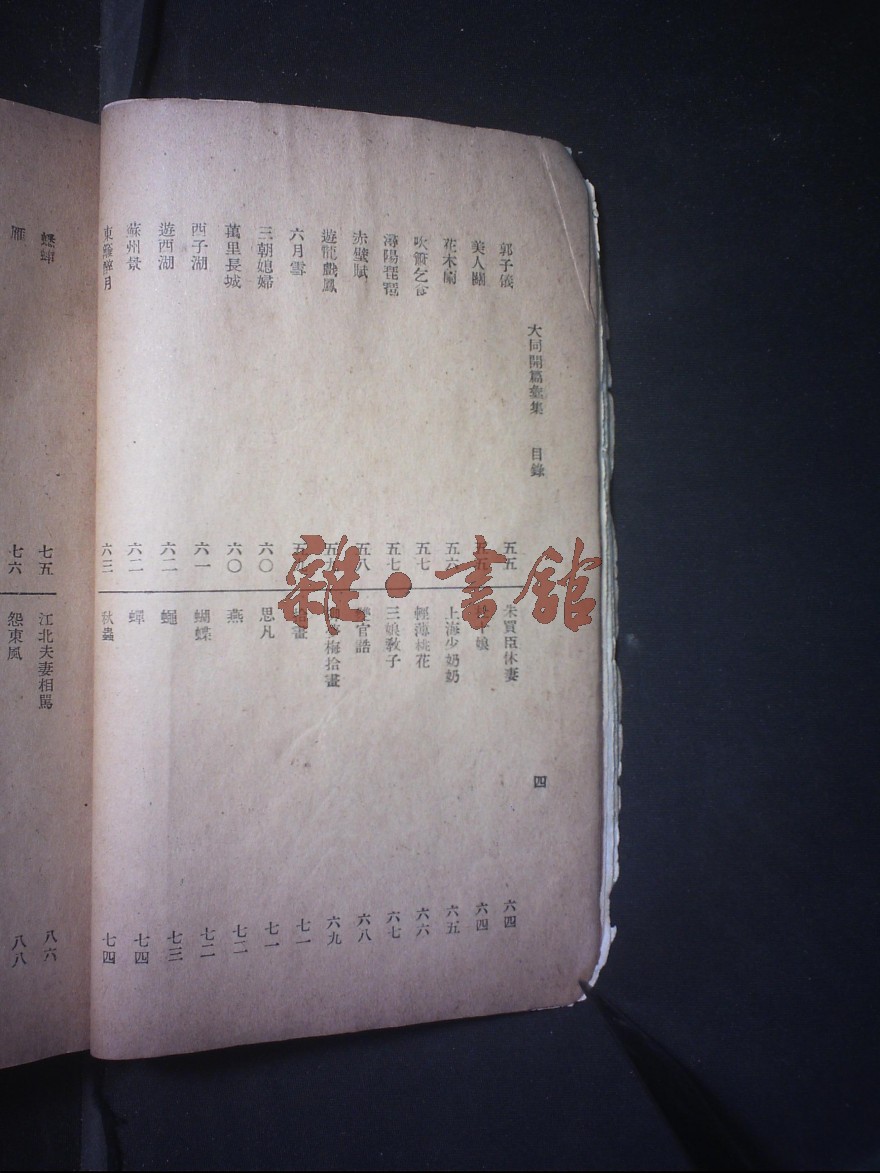 大同開篇彙集 目錄 四
郭子儀 五五
美人關 五五
花木蘭 五六
吹簫乞食 五七
潯陽琵琶 五七
赤壁賦 五八
遊龍戲鳳 五九
六月雪 五九
三朝媳婦 六〇
萬里長城 六〇
西子湖 六一
遊西湖 六二
蘇州景 六二
東籬醉月 六三
朱買臣休妻 六四
六四
上海少奶奶 六五
輕薄桃花 六六
三娘教子 六七
雙官誥 六八
梅拾畫 六九
畫 七一
思凡 七一
燕 七二
蝴蝶 七二
蠅 七三
蟬 七四
秋蟲 七四
蟋蟀 七五
雁 七六
江北夫妻相罵 八六
怨東風 八八
雜·書館